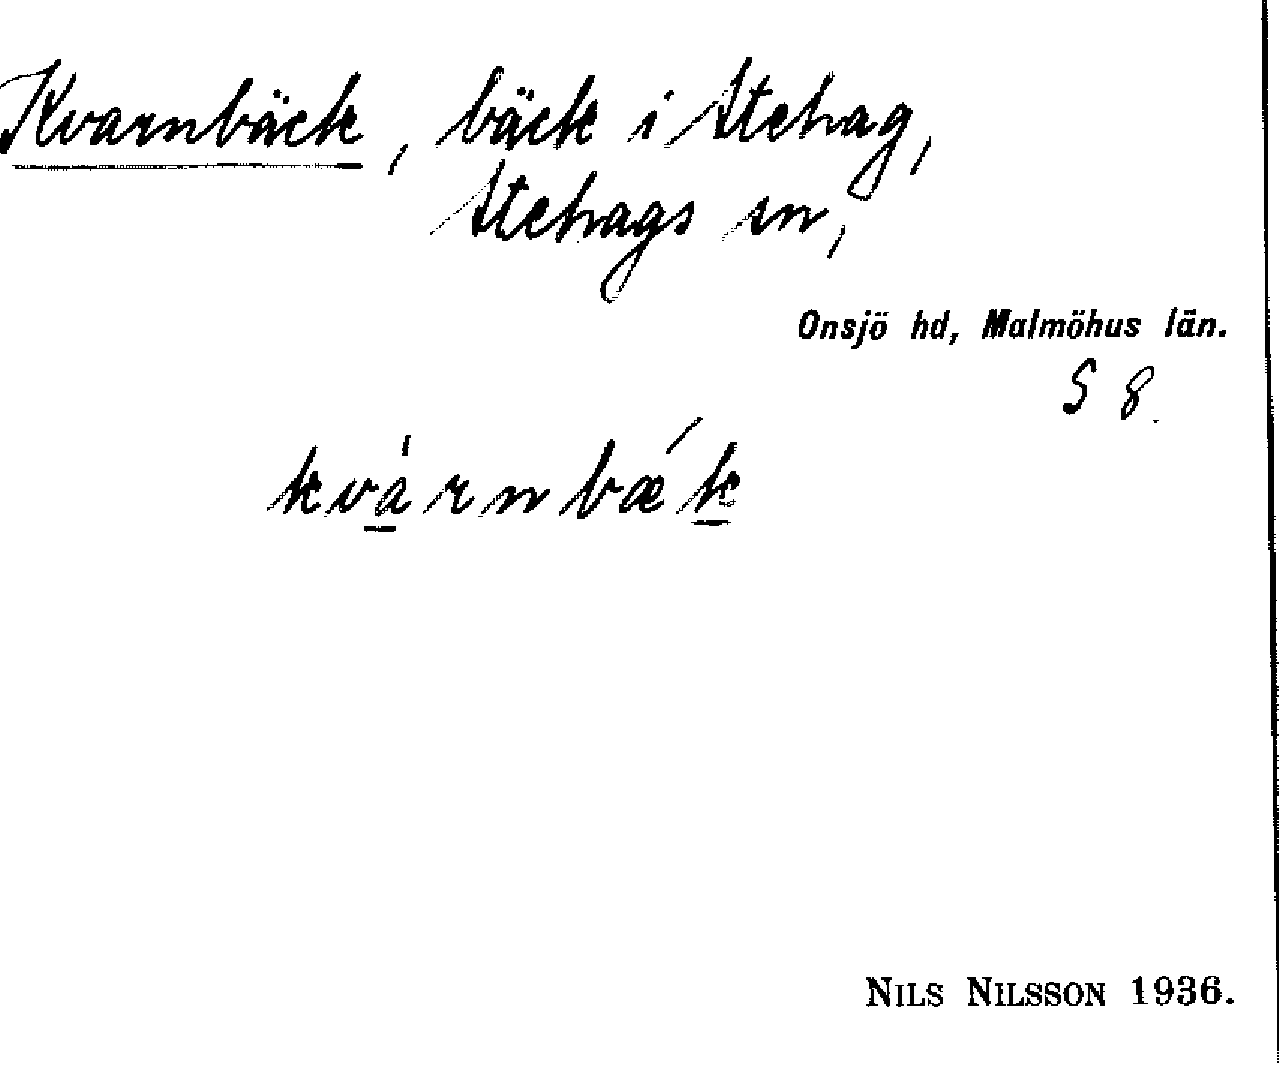 Kvarnbäck, bäck i Stehag,
Stehags sn,
Onsjö hd, Malmöhus län.
S 8.
kvá̱rnbǽḵ
NILS NILSSON 1936.